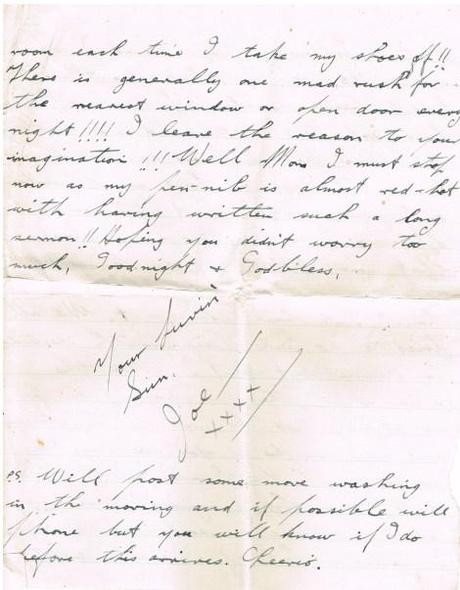 room each time I take my shoes off!!
There is generally one mad rush for
the nearest window or open door every
night!!!! I leave the reason to your
imagination!!! Well Mom I must stop
now as my pen-nib is almost red-hot
with having written such a long
sermon!! Hoping you didn't worry too
much, Goodnight & Godbless,
Your luvin'
Sun,
Joe
xxxx
PS. Will post some more washing
in the morning and if possible will
phone but you will know if I do
before this arrives. Cheerio.